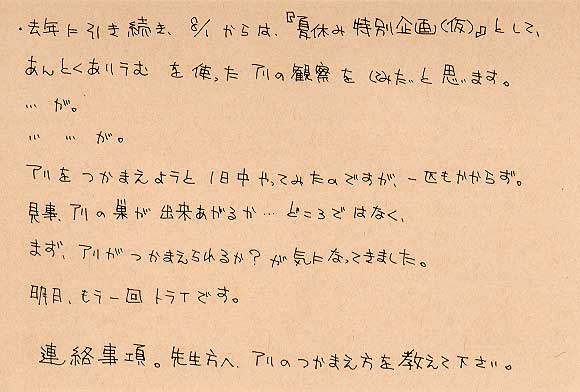 ・去年に引き続き、8/1からは、『夏休み特別企画(仮)』として、
あんとくありうむ を使ったアリの観察をしてみたいと思います。
… が。
… … が。
アリをつかまえようと1日中やってみたのですが、一匹もかからず。
見事、アリの巣が出来あがるか…どころではなく、
まず、アリがつかまえられるか？が気になってきました。
明日、もう一回トライです。
連絡事項。先生方へ、アリのつかまえ方を教えて下さい。